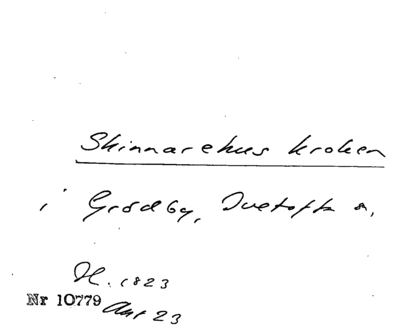 Skinnarehus kroken
i Grödby, Tvetofta s.
H. 1823
Nr 10779 Akt 23